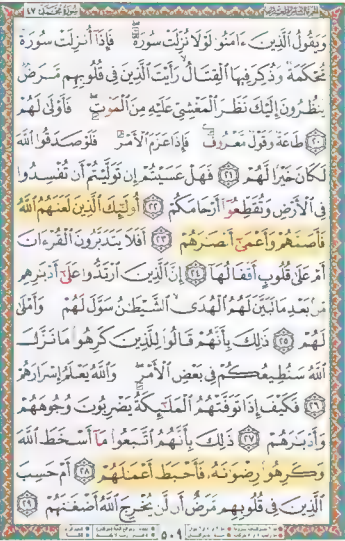 سورة محمد ٤٧
وَيَقُولُ الَّذِينَ ءَامَنُوا لَوْلَا نُزِّلَتْ سُورَةٌ فَإِذَا أُنزِلَتْ سُورَةٌ
مُّحْكَمَةٌ وَذُكِرَ فِيهَا الْقِتَالُ رَأَيْتَ الَّذِينَ فِي قُلُوبِهِم مَّرَضٌ
يَنظُرُونَ إِلَيْكَ نَظَرَ الْمَغْشِيِّ عَلَيْهِ مِنَ الْمَوْتِ فَأَوْلَىٰ لَهُمْ
﴿٢٠﴾ طَاعَةٌ وَقَوْلٌ مَّعْرُوفٌ فَإِذَا عَزَمَ الْأَمْرُ فَلَوْ صَدَقُوا اللَّهَ
لَكَانَ خَيْرًا لَّهُمْ ﴿٢١﴾ فَهَلْ عَسَيْتُمْ إِن تَوَلَّيْتُمْ أَن تُفْسِدُوا
فِي الْأَرْضِ وَتُقَطِّعُوا أَرْحَامَكُمْ ﴿٢٢﴾ أُولَٰئِكَ الَّذِينَ لَعَنَهُمُ اللَّهُ
فَأَصَمَّهُمْ وَأَعْمَىٰ أَبْصَارَهُمْ ﴿٢٣﴾ أَفَلَا يَتَدَبَّرُونَ الْقُرْءَانَ
أَمْ عَلَىٰ قُلُوبٍ أَقْفَالُهَا ﴿٢٤﴾ إِنَّ الَّذِينَ ارْتَدُّوا عَلَىٰ أَدْبَارِهِم
مِّن بَعْدِ مَا تَبَيَّنَ لَهُمُ الْهُدَى الشَّيْطَانُ سَوَّلَ لَهُمْ وَأَمْلَىٰ
لَهُمْ ﴿٢٥﴾ ذَٰلِكَ بِأَنَّهُمْ قَالُوا لِلَّذِينَ كَرِهُوا مَا نَزَّلَ
اللَّهُ سَنُطِيعُكُمْ فِي بَعْضِ الْأَمْرِ وَاللَّهُ يَعْلَمُ إِسْرَارَهُمْ
﴿٢٦﴾ فَكَيْفَ إِذَا تَوَفَّتْهُمُ الْمَلَائِكَةُ يَضْرِبُونَ وُجُوهَهُمْ
وَأَدْبَارَهُمْ ﴿٢٧﴾ ذَٰلِكَ بِأَنَّهُمُ اتَّبَعُوا مَا أَسْخَطَ اللَّهَ
وَكَرِهُوا رِضْوَانَهُ فَأَحْبَطَ أَعْمَالَهُمْ ﴿٢٨﴾ أَمْ حَسِبَ
الَّذِينَ فِي قُلُوبِهِم مَّرَضٌ أَن لَّن يُخْرِجَ اللَّهُ أَضْغَانَهُمْ ﴿٢٩﴾
٥٠٩